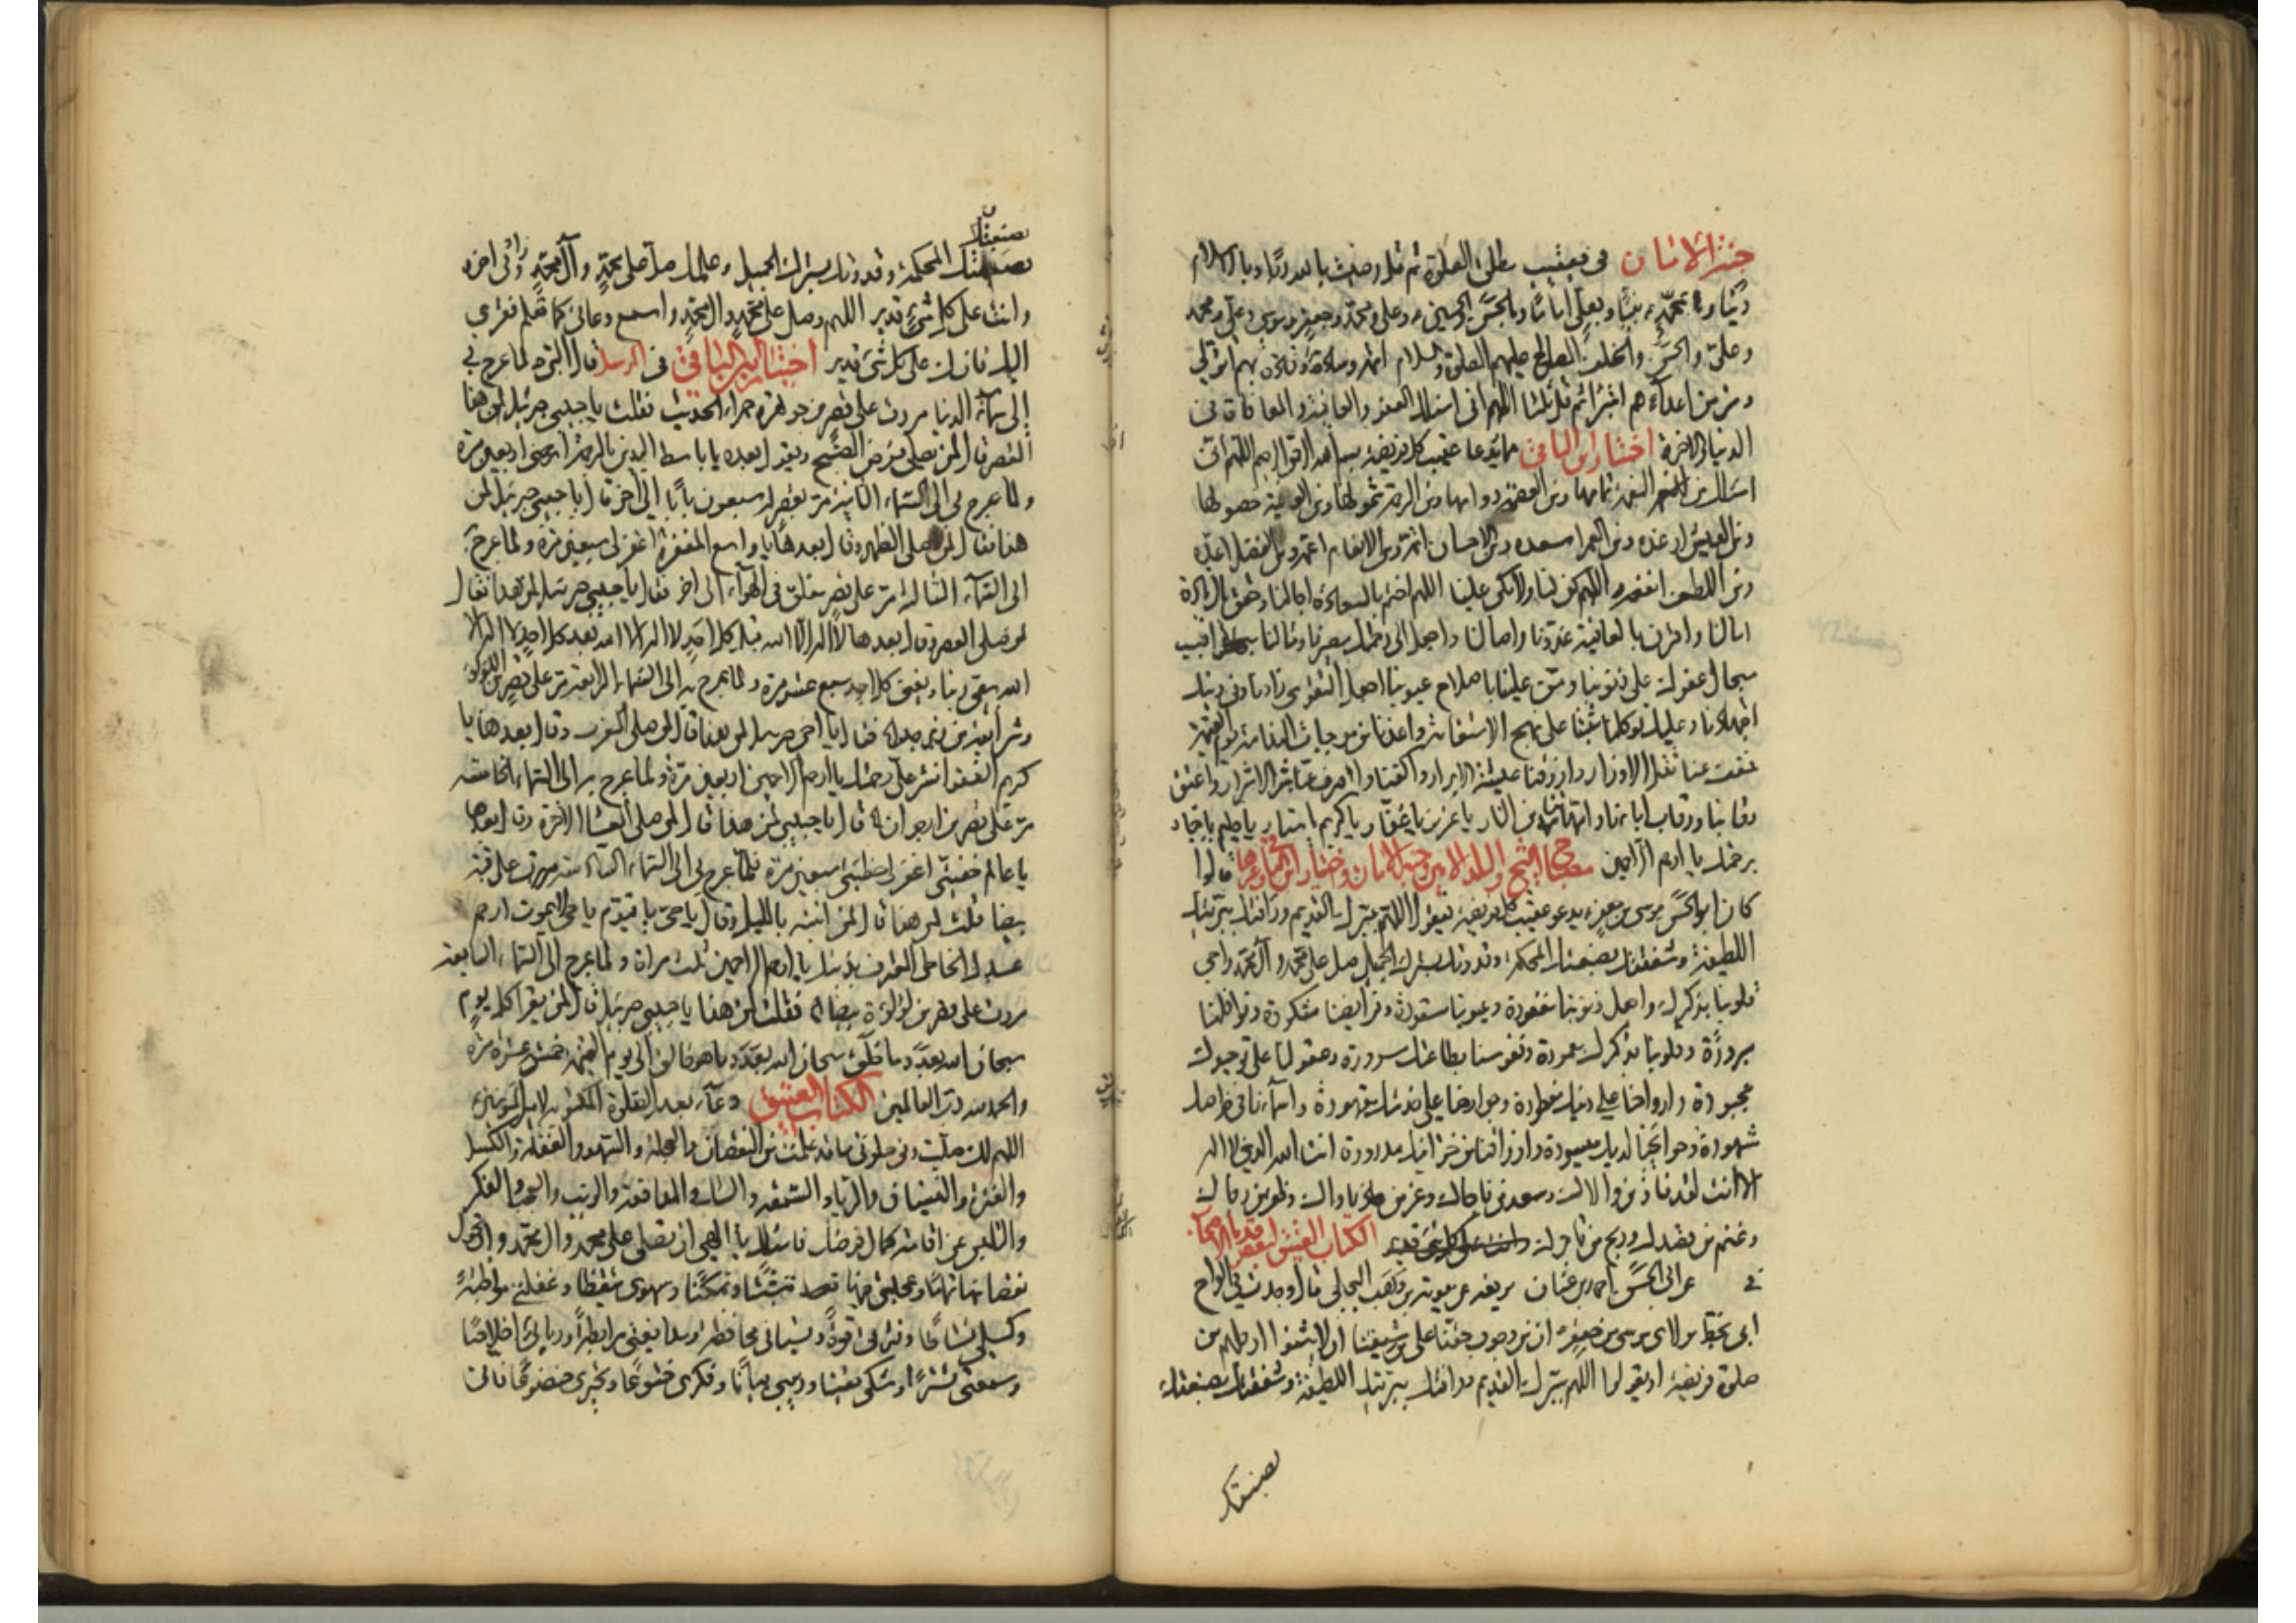 جنة الأمان في تعقيب مطلق الصلوة ثم قل رضيت بالله ربا وبالاسلام
دينا وبمحمد نبيا وبعلي اماما وبالحسن والحسين وعلي ومحمد وجعفر وموسى وعلي ومحمد
وعلي والحسن والخلف الصالح عليهم الصلوة والسلام ائمة وسادة وقادة بهم اتولى
ومن اعدائهم اتبرأ ثم قل ثلثا اللهم اني اسئلك العفو والعافية والمعافاة في
الدنيا والاخرة اختيار ابن الباقي مما يدعا عقيب كل فريضة بسم الله الرحمن الرحيم اللهم اني
اسئلك من النعمة تمامها ومن العصمة دوامها ومن الرحمة شمولها ومن العافية حصولها
ومن العيش ارغده ومن العمر اسعده ومن الاحسان اتمه ومن الانعام اعمه ومن الفضل اعذبه
ومن اللطف انفعه اللهم كن لنا ولا تكن علينا اللهم اختم بالسعادة اجالنا وحقق بالزيادة
امالنا واقرن بالعافية غدونا واصالنا واجعل الى رحمتك مصيرنا ومالنا واصبب
سجال عفوك على ذنوبنا ومن علينا باصلاح عيوبنا اجعل التقوى زادنا وفي دينك
اجتهادنا وعليك توكلنا ثبتنا على نهج الاستقامة واعذنا من موجبات الندامة يوم القيمة
خفف عنا ثقل الاوزار وارزقنا عيشة الابرار واكفنا واصرف عنا شر الاشرار واعتق
رقابنا ورقاب ابائنا وامهاتنا من النار يا عزيز يا غفار يا كريم يا ستار يا حليم يا جبار
برحمتك يا ارحم الراحمين مصباح الشيخ والبلد الامين وجنة الامان واختيار ابن الباقي وغيرها قالوا
كان ابو الحسن موسى بن جعفر يدعو عقيب كل فريضة فيقول اللهم ببرك القديم ورأفتك ببريتك
اللطيفة وشفقتك بصنعتك المحكمة وقدرتك بسترك الجميل صل على محمد وآل محمد واحي
قلوبنا بذكرك واجعل ذنوبنا مغفورة وعيوبنا مستورة وفرايضنا مشكورة ونوافلنا
مبرورة وقلوبنا بذكرك معمورة ونفوسنا بطاعتك مسرورة وعقولنا على توحيدك
مجبورة وارواحنا على دينك مفطورة وجوارحنا على خدمتك مقهورة واسماءنا في خواصك
مشهورة وحوائجنا لديك ميسورة وارزاقنا من خزائنك مدرورة انت الله الذي لا اله
الا انت لقد فاز من والاك وسعد من ناجاك وعز من ناداك وظفر من رجاك
وغنم من قصدك وربح من تاجرك وانت على كل شئ قدير الكتاب العتيق لبعض قدماء الاصحاب
عن ابي الحسن احمد بن عثمان يرفعه عن معوية بن وهب البجلي قال وجدت في الواح
ابي بخط مولاي موسى بن جعفر ان من وجوب حقنا على شيعتنا ان لا يثنوا ارجلهم من
صلوة فريضة او يقولوا اللهم ببرك القديم ورأفتك ببريتك اللطيفة وشفقتك بصنعتك
بصنعتك
بصنعتك
المحكمة وقدرتك بسترك الجميل وعلمك صل على محمد وآل محمد الى اخره
وانت على كل شئ قدير اللهم وصل على محمد وآل محمد واسمع دعائي كما تعلم فقري
اليك فانك على كل شئ قدير اختيار ابن الباقي في المرسل قال النبي لما عرج بي
الى سماء الدنيا مررت على قصر من جوهرة حمراء الحديث فقلت يا حبيبي جبرئيل لمن هذا
القصر قال لمن يصلي فرض الصبح ويقول بعده يا باسط اليدين بالرحمة ارحمني اربعين مرة
ولما عرج بي الى السماء الثانية مر بقصر له سبعون بابا الى اخر قال يا حبيبي جبرئيل لمن
هذا فقال لمن صلى الظهر وقال بعدها يا واسع المغفرة اغفر لي سبعين مرة ولما عرج
الى السماء الثالثة مر على قصر معلق في الهواء الى اخر فقال يا حبيبي جبرئيل لمن هذا فقال
لمن صلى العصر وقال بعدها لا اله الا الله قبل كل احد لا اله الا الله بعد كل احد لا اله الا
الله يبقى ربنا ويفنى كل احد سبع عشر مرة ولما عرج به الى السماء الرابعة مر على قصر من اللؤلؤ
وشرائفه من زبرجد فقال يا اخي جبرئيل لمن هذا قال لمن صلى المغرب وقال بعدها يا
كريم العفو انشر علي رحمتك يا ارحم الراحمين اربعين مرة ولما عرج به الى السماء الخامسة
مر على قصر من ارجوان قال يا حبيبي لمن هذا قال لمن صلى العشاء الاخرة وقال بعدها
يا عالم خفيتي اغفر لي خطيئتي سبعين مرة فلما عرج بي الى السماء السادسة مررت على قبة
بيضاء فقلت لمن هذا قال لمن انتبه بالليل وقال يا حي يا قيوم يا حي لا يموت ارحم
عبدك الخاطئ المعترف بذنبه يا ارحم الراحمين ثلث مرات ولما عرج الى السماء السابعة
مررت على قصر من لؤلؤة بيضاء فقلت لمن هذا يا حبيبي جبرئيل قال لمن يقرأ كل يوم
سبحان الله بعدد ما خلق سبحان الله بعدد ما هو خالق الى يوم القيمة خمس عشرة مرة
والحمد لله رب العالمين الكتاب العتيق دعاء بعد الصلوة المكتوبة لامير المؤمنين
اللهم لك صليت وفي صلوتي ما قد علمت من النقصان والعجلة والسهو والغفلة والكسل
والفترة والنسيان والرياء والسمعة والشك والمدافعة والريب والعجب والفكر
والتلبث عن اقامة كمال فرضك فاسئلك يا الهي ان تصلي على محمد وآل محمد وان تحول
نقصانها تماما وعجلتي فيها تثبتا وتمكنا وسهوي تيقظا وغفلتي مواظبة
وكسلي نشاطا وفترتي قوة ونسياني محافظة ومدافعتي مرابطة وريائي اخلاصا
وسمعتي تسترا وشكي يقينا وريبي بيانا وفكري خشوعا وتحيري خضوعا فاني